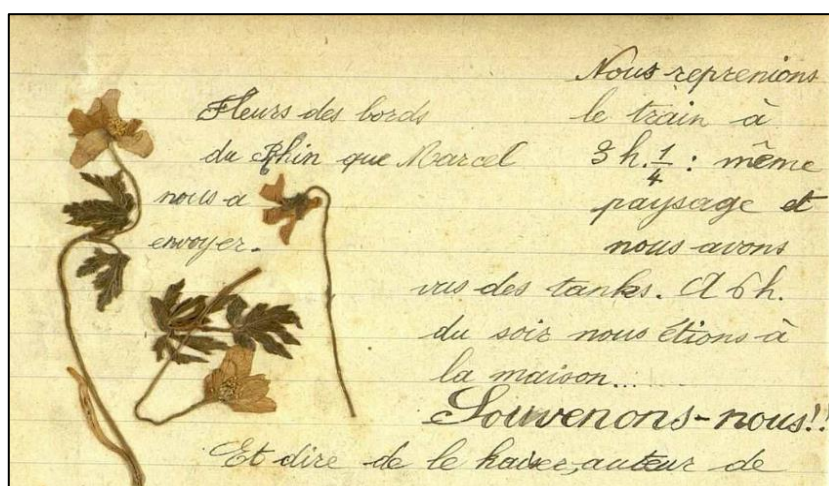 Fleurs des bords
du Rhin que Marcel
nous a
envoyer.
Nous reprenions
le train à
3 h. 1/4 : même
paysage et
nous avons
vus des tanks. A 6 h.
du soir nous étions à
la maison...
Souvenons-nous!!
Et dire de le kaiser, auteur de